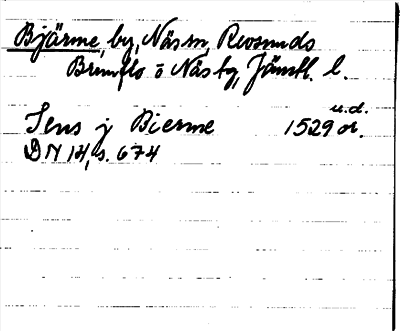 Bjärme, by, Näs sn, Revsunds
Brunflo o Näs tg, Jämtl. l.
u.d.
Jens j Bierme 1529 or.
DN 14, s. 674